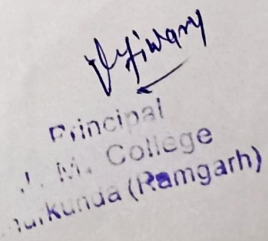 Principal
J. M. College
(Ramgarh)